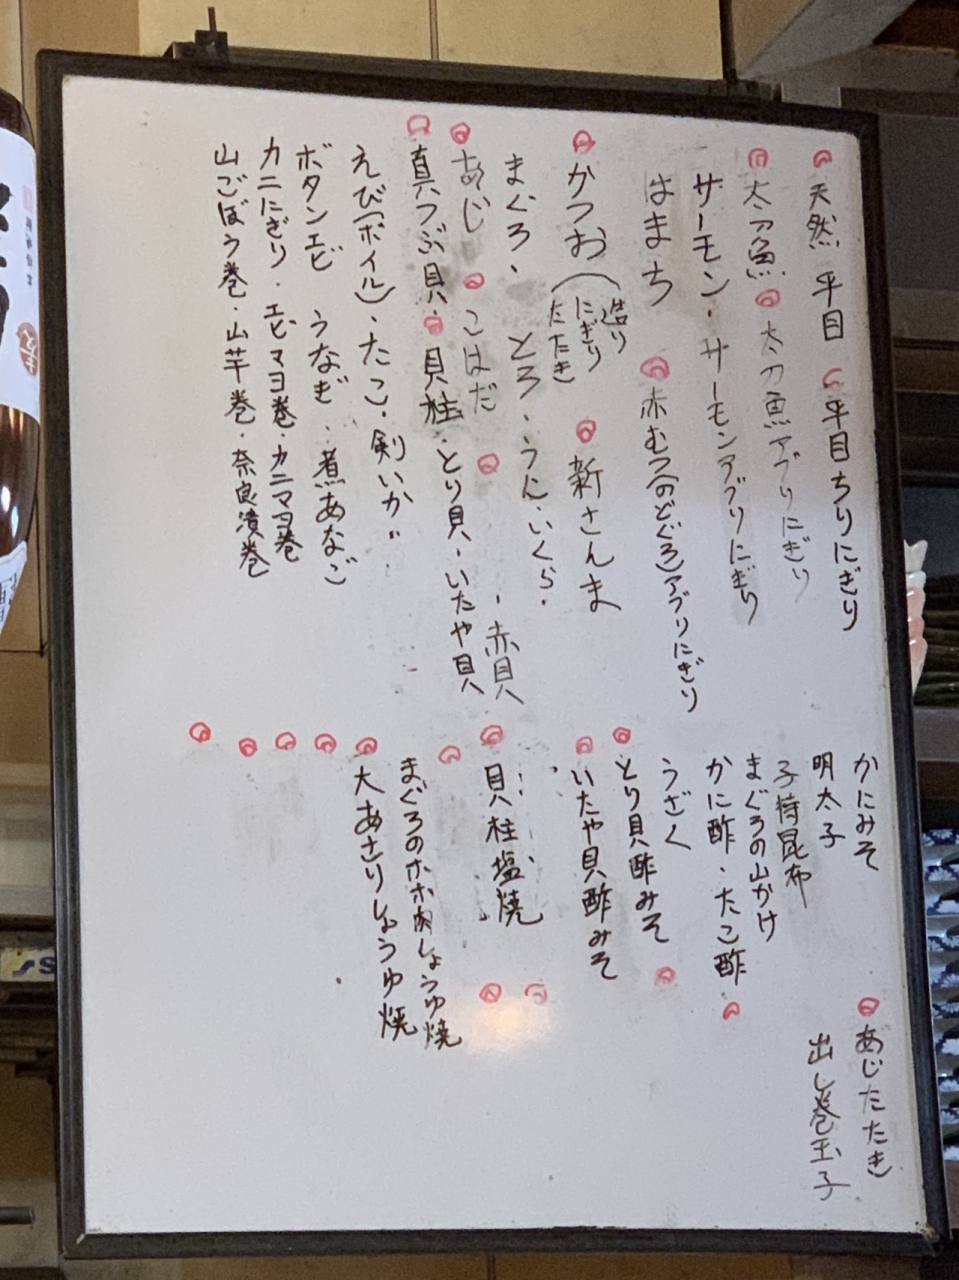 天然 平目 平目ちりにぎり
太刀魚 太刀魚アブリにぎり
サーモン・サーモンアブリにぎり
はまち 赤むつ(のどぐろ)アブリにぎり
かつお(造り にぎり たたき 新さんま
まぐろ・とろ・うに・いくら・
あじ こはだ 赤貝
真つぶ貝・貝柱・とり貝・いたや貝
えび(ボイル)・たこ・剣いか
ボタンエビ うなぎ・煮あなご
カニにぎり・エビマヨ巻・カニマヨ巻
山ごぼう巻・山芋巻・奈良漬巻
かにみそ あじたたき
明太子 出し巻玉子
子持昆布
まぐろの山かけ
かに酢・たこ酢
うざく
とり貝酢みそ
いたや貝酢みそ
貝柱塩焼
まぐろのホホ肉しょうゆ焼
大あさりしょうゆ焼